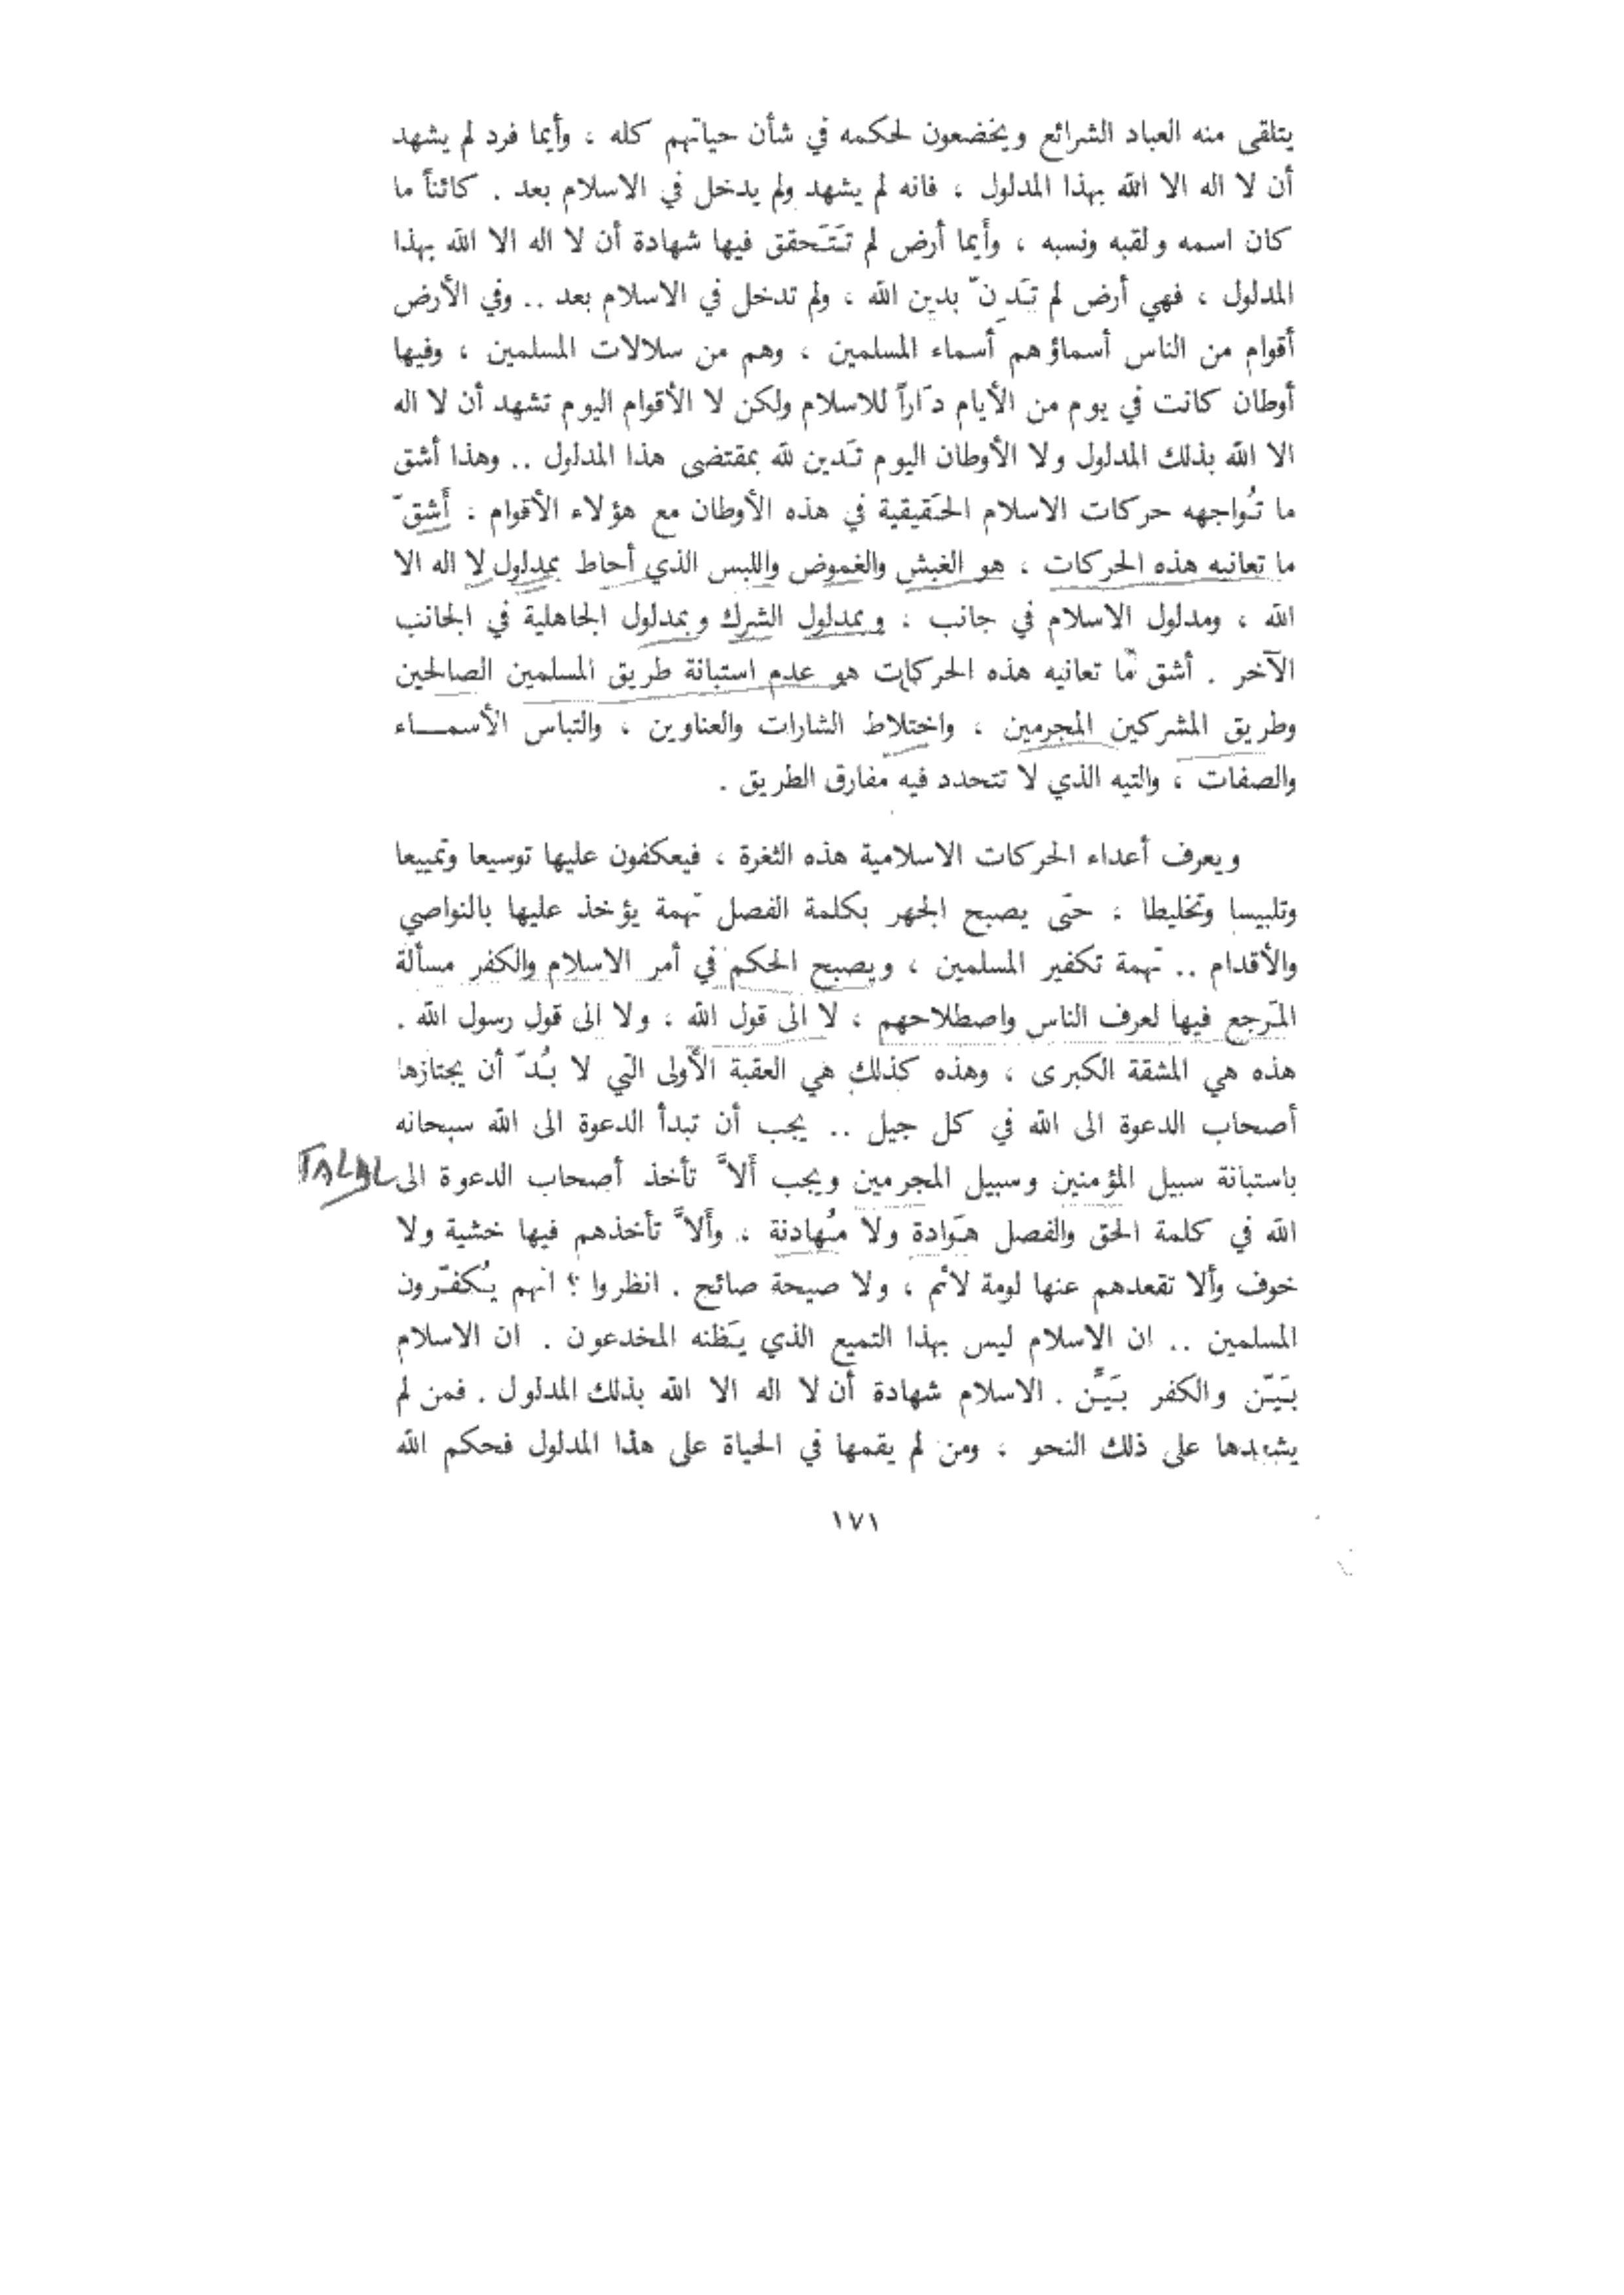 يتلقى منه العباد الشرائع ويخضعون لحكمه في شأن حياتهم كله ، وأيما فرد لم يشهد
أن لا اله الا الله بهذا المدلول ، فانه لم يشهد ولم يدخل في الاسلام بعد . كائناً ما
كان اسمه ولقبه ونسبه ، وأيما أرض لم تَتَحقق فيها شهادة أن لا اله الا الله بهذا
المدلول ، فهي أرض لم تَدِنّ بدين الله ، ولم تدخل في الاسلام بعد .. وفي الأرض
أقوام من الناس أسماؤهم أسماء المسلمين ، وهم من سلالات المسلمين ، وفيها
أوطان كانت في يوم من الأيام دَاراً للاسلام ولكن لا الأقوام اليوم تشهد أن لا اله
الا الله بذلك المدلول ولا الأوطان اليوم تَدين لله بمقتضى هذا المدلول .. وهذا أشق
ما تُواجهه حركات الاسلام الحَقيقية في هذه الأوطان مع هؤلاء الأقوام : أَشقّ
ما تعانيه هذه الحركات ، هو الغبش والغموض واللبس الذي أحاط بمدلول لا اله الا
الله ، ومدلول الاسلام في جانب ، وبمدلول الشرك وبمدلول الجاهلية في الجانب
الآخر . أشق مّا تعانيه هذه الحركات هو عدم استبانة طريق المسلمين الصالحين
وطريق المشركين المجرمين ، واختلاط الشارات والعناوين ، والتباس الأسمـــاء
والصفات ، والتيه الذي لا تتحدد فيه مَفارق الطريق .
ويعرف أعداء الحركات الاسلامية هذه الثغرة ، فيعكفون عليها توسيعا وتمييعا
وتلبيسا وتخليطا ، حتى يصبح الجهر بكلمة الفصل تهمة يؤخذ عليها بالنواصي
والأقدام .. تهمة تكفير المسلمين ، ويصبح الحكم في أمر الاسلام والكفر مسألة
المَرجع فيها لعرف الناس واصطلاحهم ، لا الى قول الله ، ولا الى قول رسول الله .
هذه هي المشقة الكبرى ، وهذه كذلك هي العقبة الأولى التي لا بُدّ أن يجتازها
أصحاب الدعوة الى الله في كل جيل .. يجب أن تبدأ الدعوة الى الله سبحانه
باستبانة سبيل المؤمنين وسبيل المجرمين ويجب أَلاَّ تأخذ أصحاب الدعوة الى TALAL
الله في كلمة الحق والفصل هَوادة ولا مُهادنة ، وأَلاَّ تأخذهم فيها خشية ولا
خوف وألا تقعدهم عنها لومة لائم ، ولا صيحة صائح . انظروا ؟ انهم يُكفّرون
المسلمين .. ان الاسلام ليس بهذا التميع الذي يَظنه المخدعون . ان الاسلام
بَيّن والكفر بَيَّن . الاسلام شهادة أن لا اله الا الله بذلك المدلول . فمن لم
يشهدها على ذلك النحو ، ومن لم يقمها في الحياة على هذا المدلول فحكم الله
١٧١